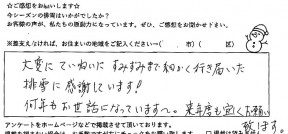 ☆ご感想をお伺いします☆
今シーズンの排雪はいかがでしたか？
お客様の声が、私たちの原動力になっています。ぜひ、ご感想をお聞かせ下さい。
※差支えなければ、お住まいの地域をご記入ください→( 市)( 区)
大変にていねいにすみずみまで細かく行き届いた
排雪に感謝しています！
何年もお世話になっています〜。来年度も宜しくお願い
致します。
アンケートをホームページなどで掲載させて頂いております。